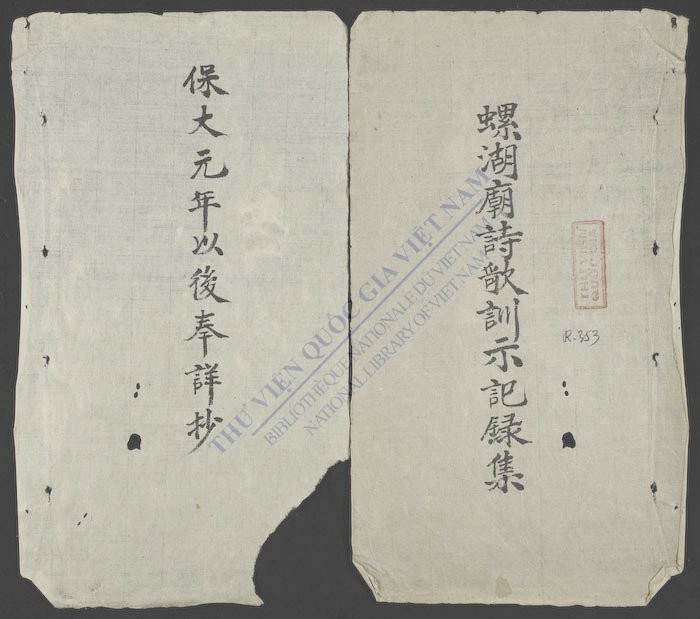 螺湖廟詩歌訓示記録集
保大元年以後奉詳抄
R.353
THƯ VIỆN QUỐC GIA VIỆT NAM
BIBLIOTHÈQUE NATIONALE DU VIETNAM
NATIONAL LIBRARY OF VIETNAM